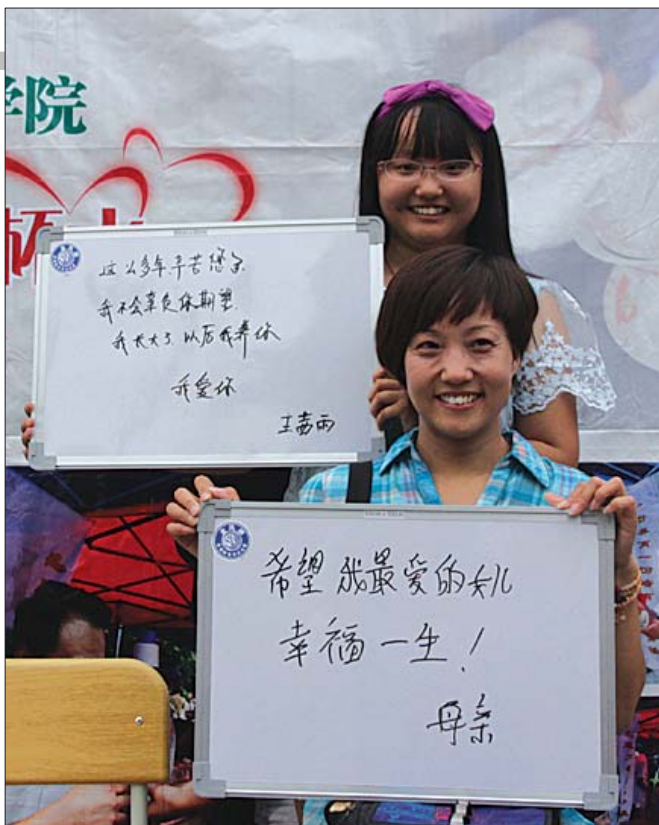 学院
杯水
这么多年辛苦您了
我不会辜负你期望
我长大了以后我养你
我爱你
王茜雨
希望我最爱的女儿
幸福一生！
母亲